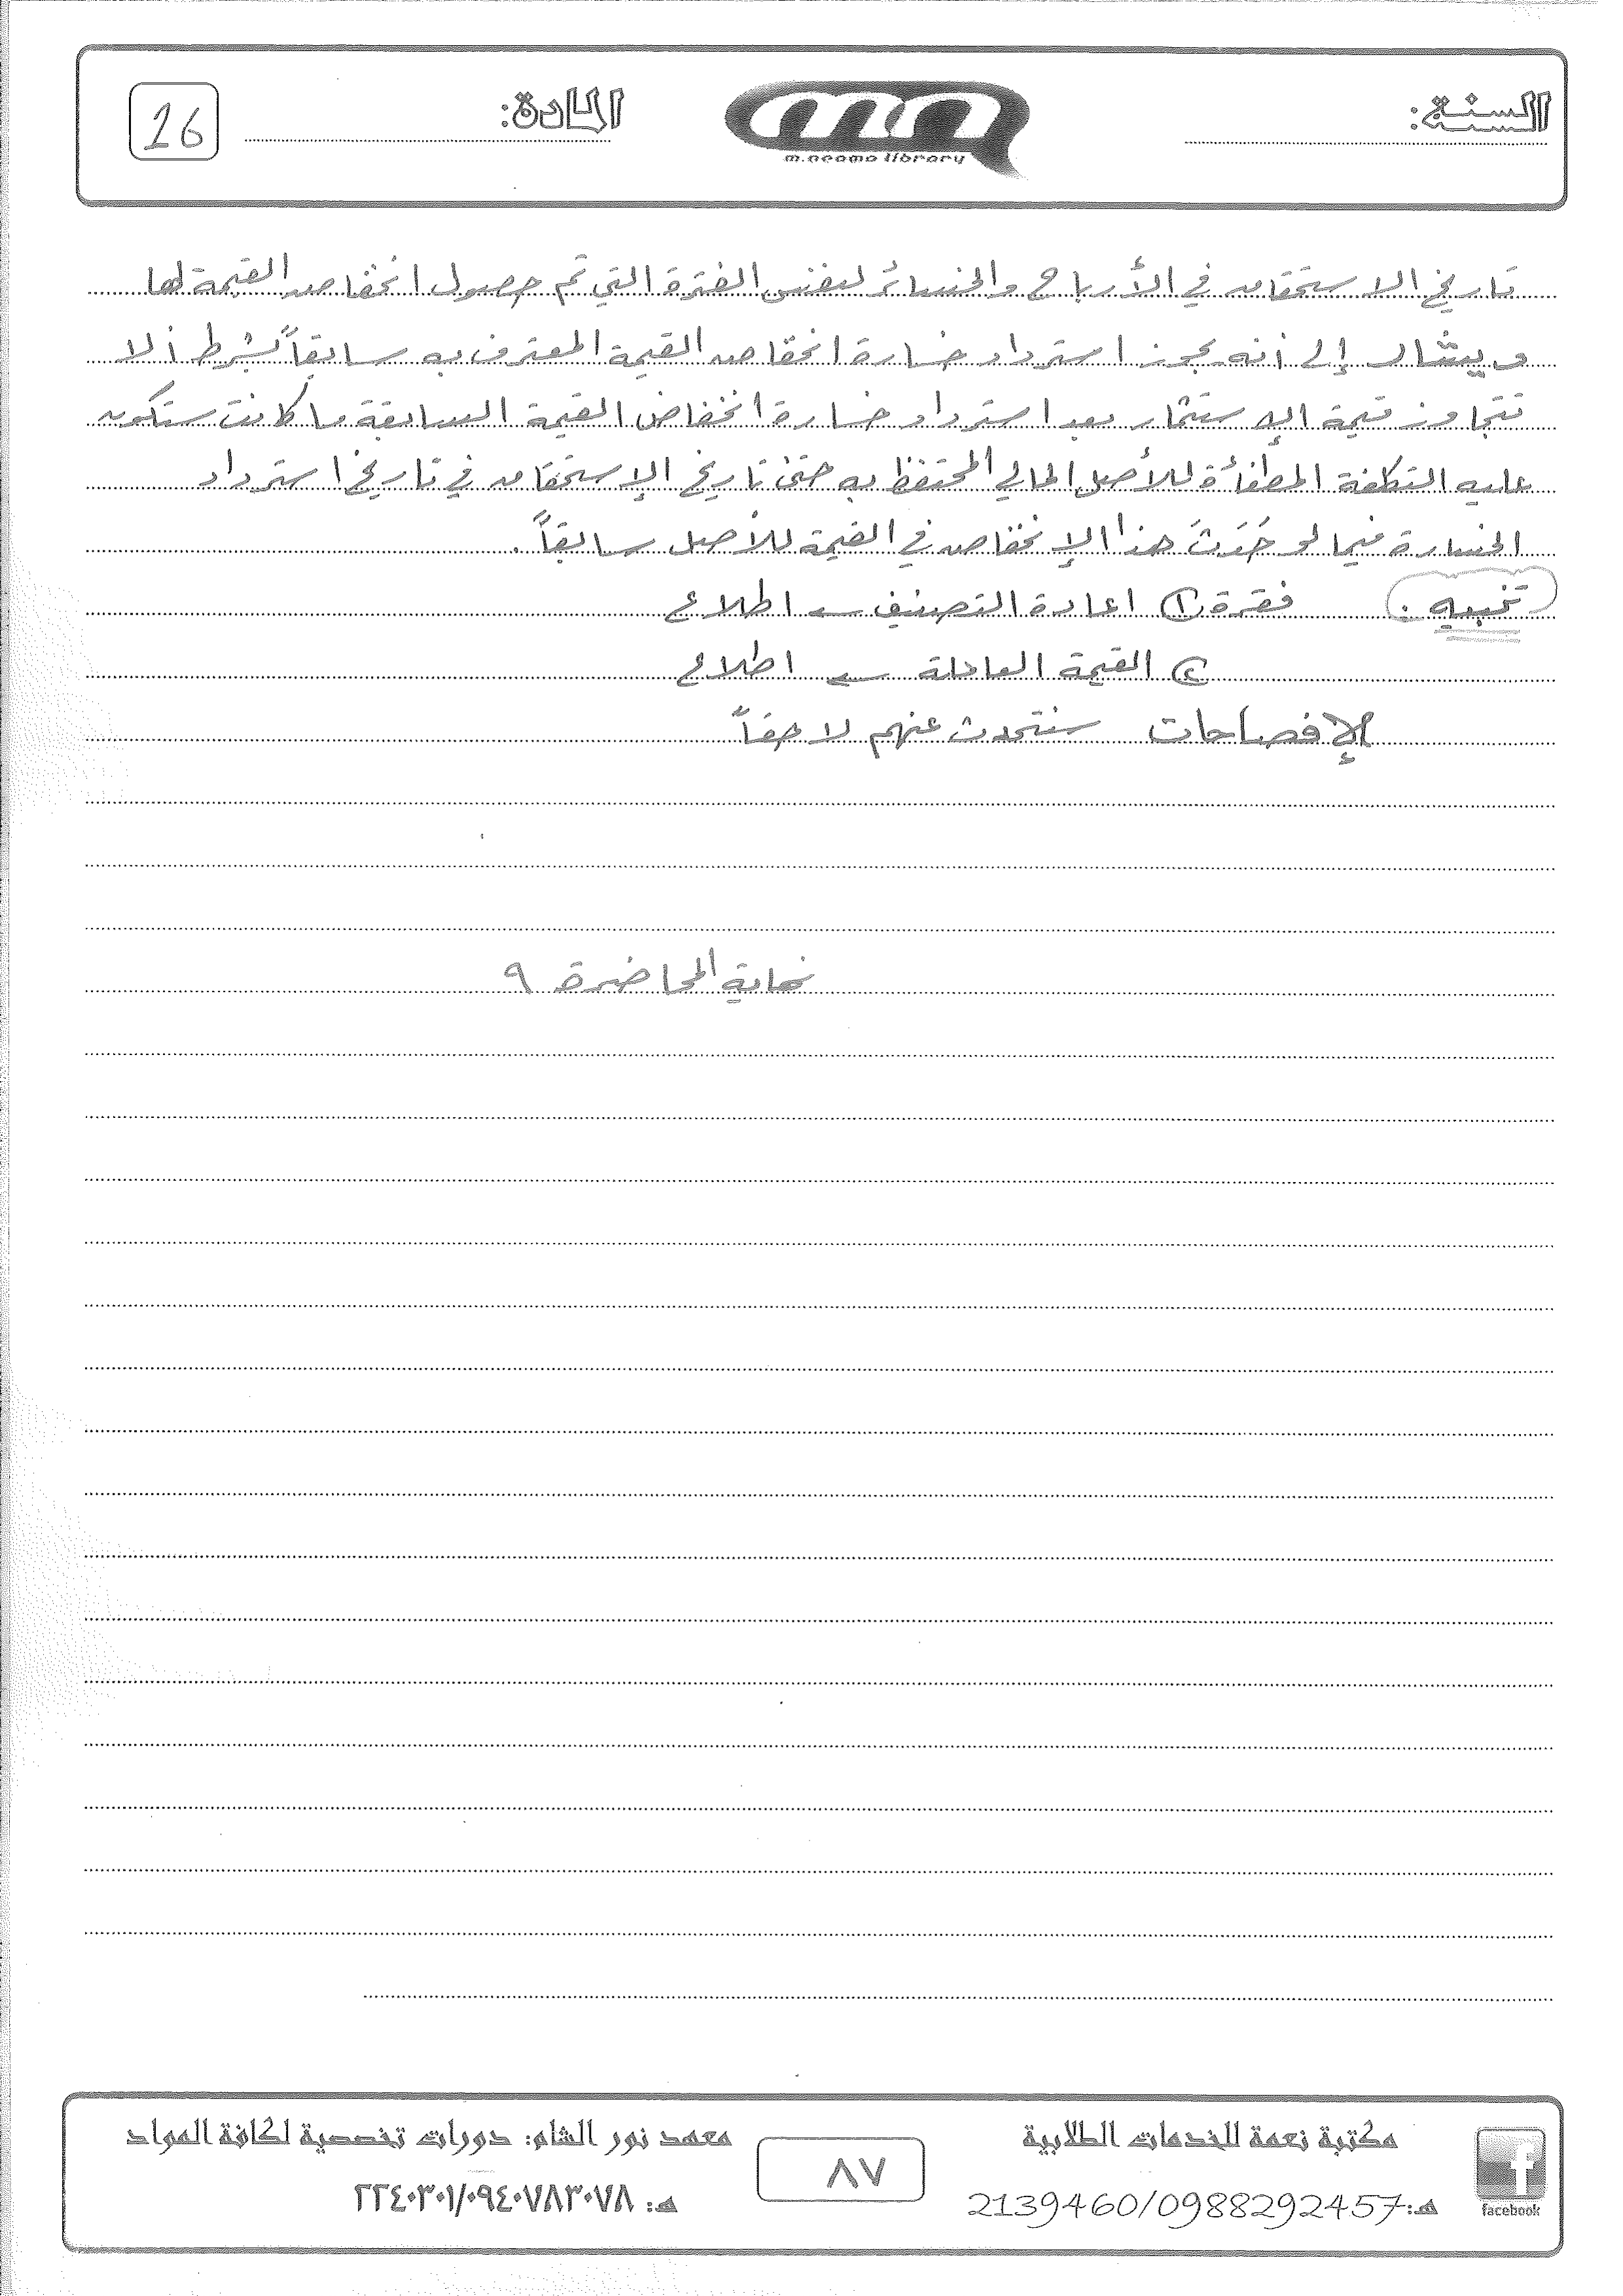 السنة:
m.neama library
المادة:
16
تاريخ الاستحقاق في الأرباح والخسائر لنفس الفترة التي تم حصول انخفاض القيمة لها
ويشار إلى أنه يجوز استرداد خسارة انخفاض القيمة المعترف به سابقاً بشرط ألا
تتجاوز قيمة الإستثمار بعد استرداد خسارة انخفاض القيمة السابقة ما كانت ستكون
عليه التكلفة المطفأة للأصل المالي المحتفظ به حتى تاريخ الإستحقاق في تاريخ استرداد
الخسارة فيما لو حَدَثَ هذا الإنخفاض في القيمة للأصل سابقاً.
تنبيه: فقرة ① اعادة التصنيف ← اطلاع
② القيمة العادلة ← اطلاع
الإفصاحات سنتحدث عنهم لاحقاً
نهاية المحاضرة ٩
مكتبة نعمة للخدمات الطلابية
هـ: 2139460/0988292457
facebook
٨٧
معهد نور الشام: دورات تخصصية لكافة المواد
هـ: ٢٢٤٠٣٠١/٠٩٤٠٧٨٣٠٧٨